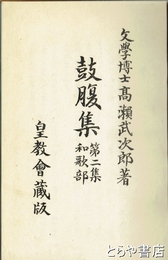 文學博士髙瀨武次郎著
鼓腹集 第二集
和歌部
皇敎會藏版
とらや書店